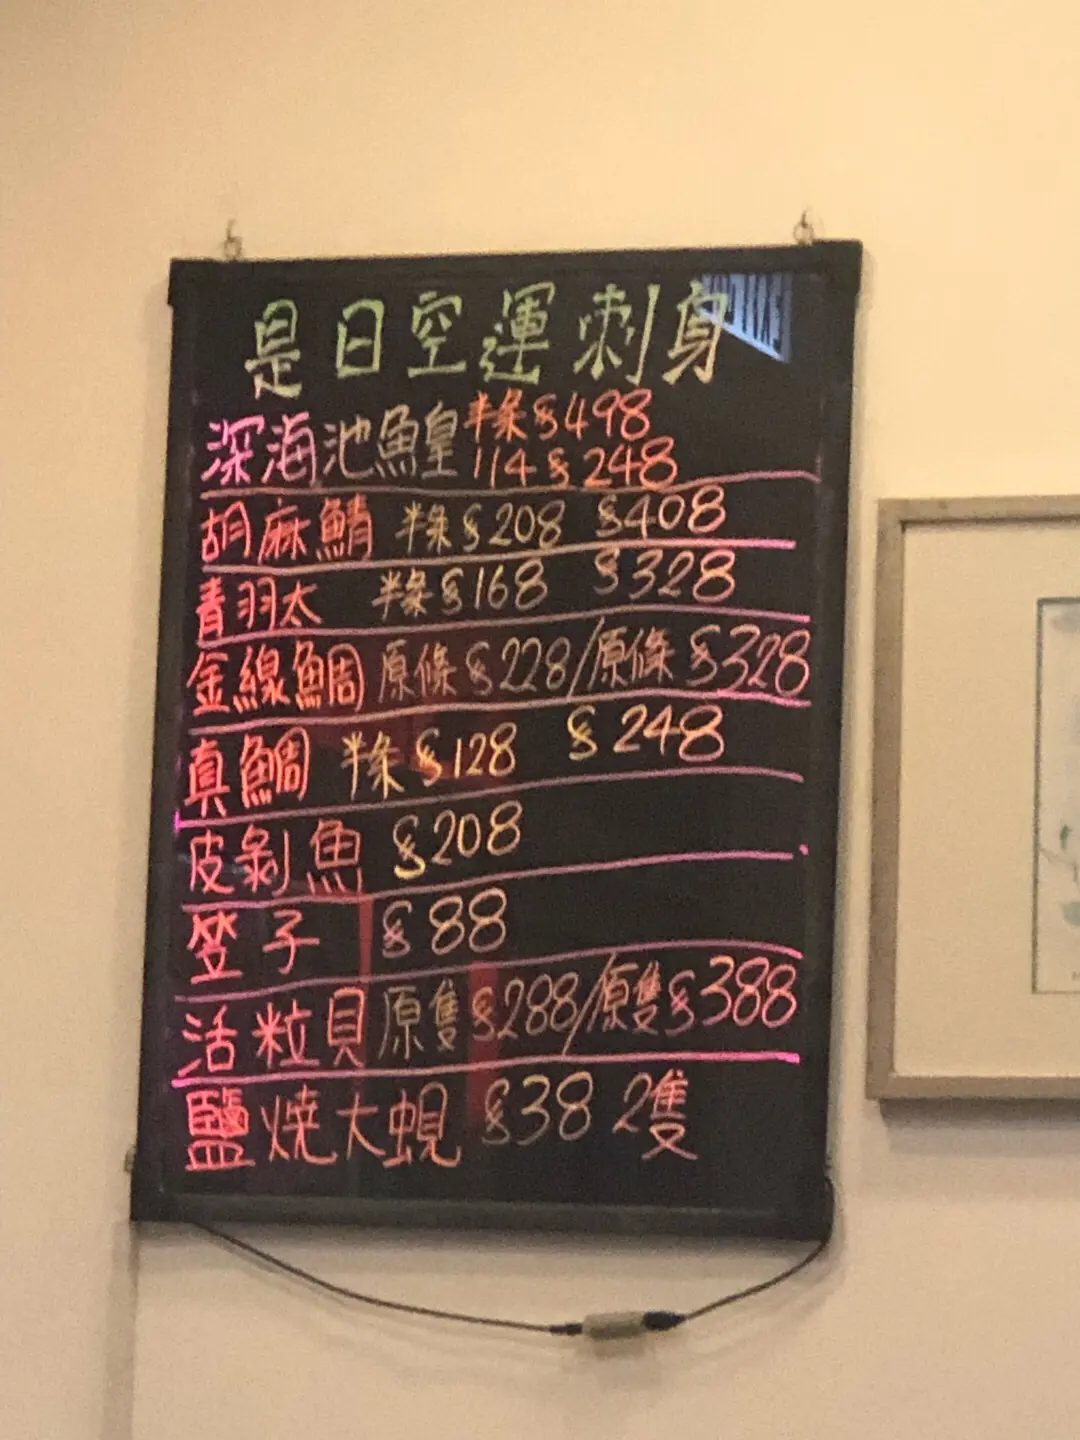 是日空運刺身
深海池魚皇 半条 $498
1/4 $248
胡麻鯖 半条 $208 $408
青羽太 半条 $168 $328
金線鯛 原條 $228/原條 $328
真鯛 半条 $128 $248
皮剝魚 $208
竪子 $88
活粒貝 原隻 $288/原隻 $388
鹽燒大蜆 $38 2隻